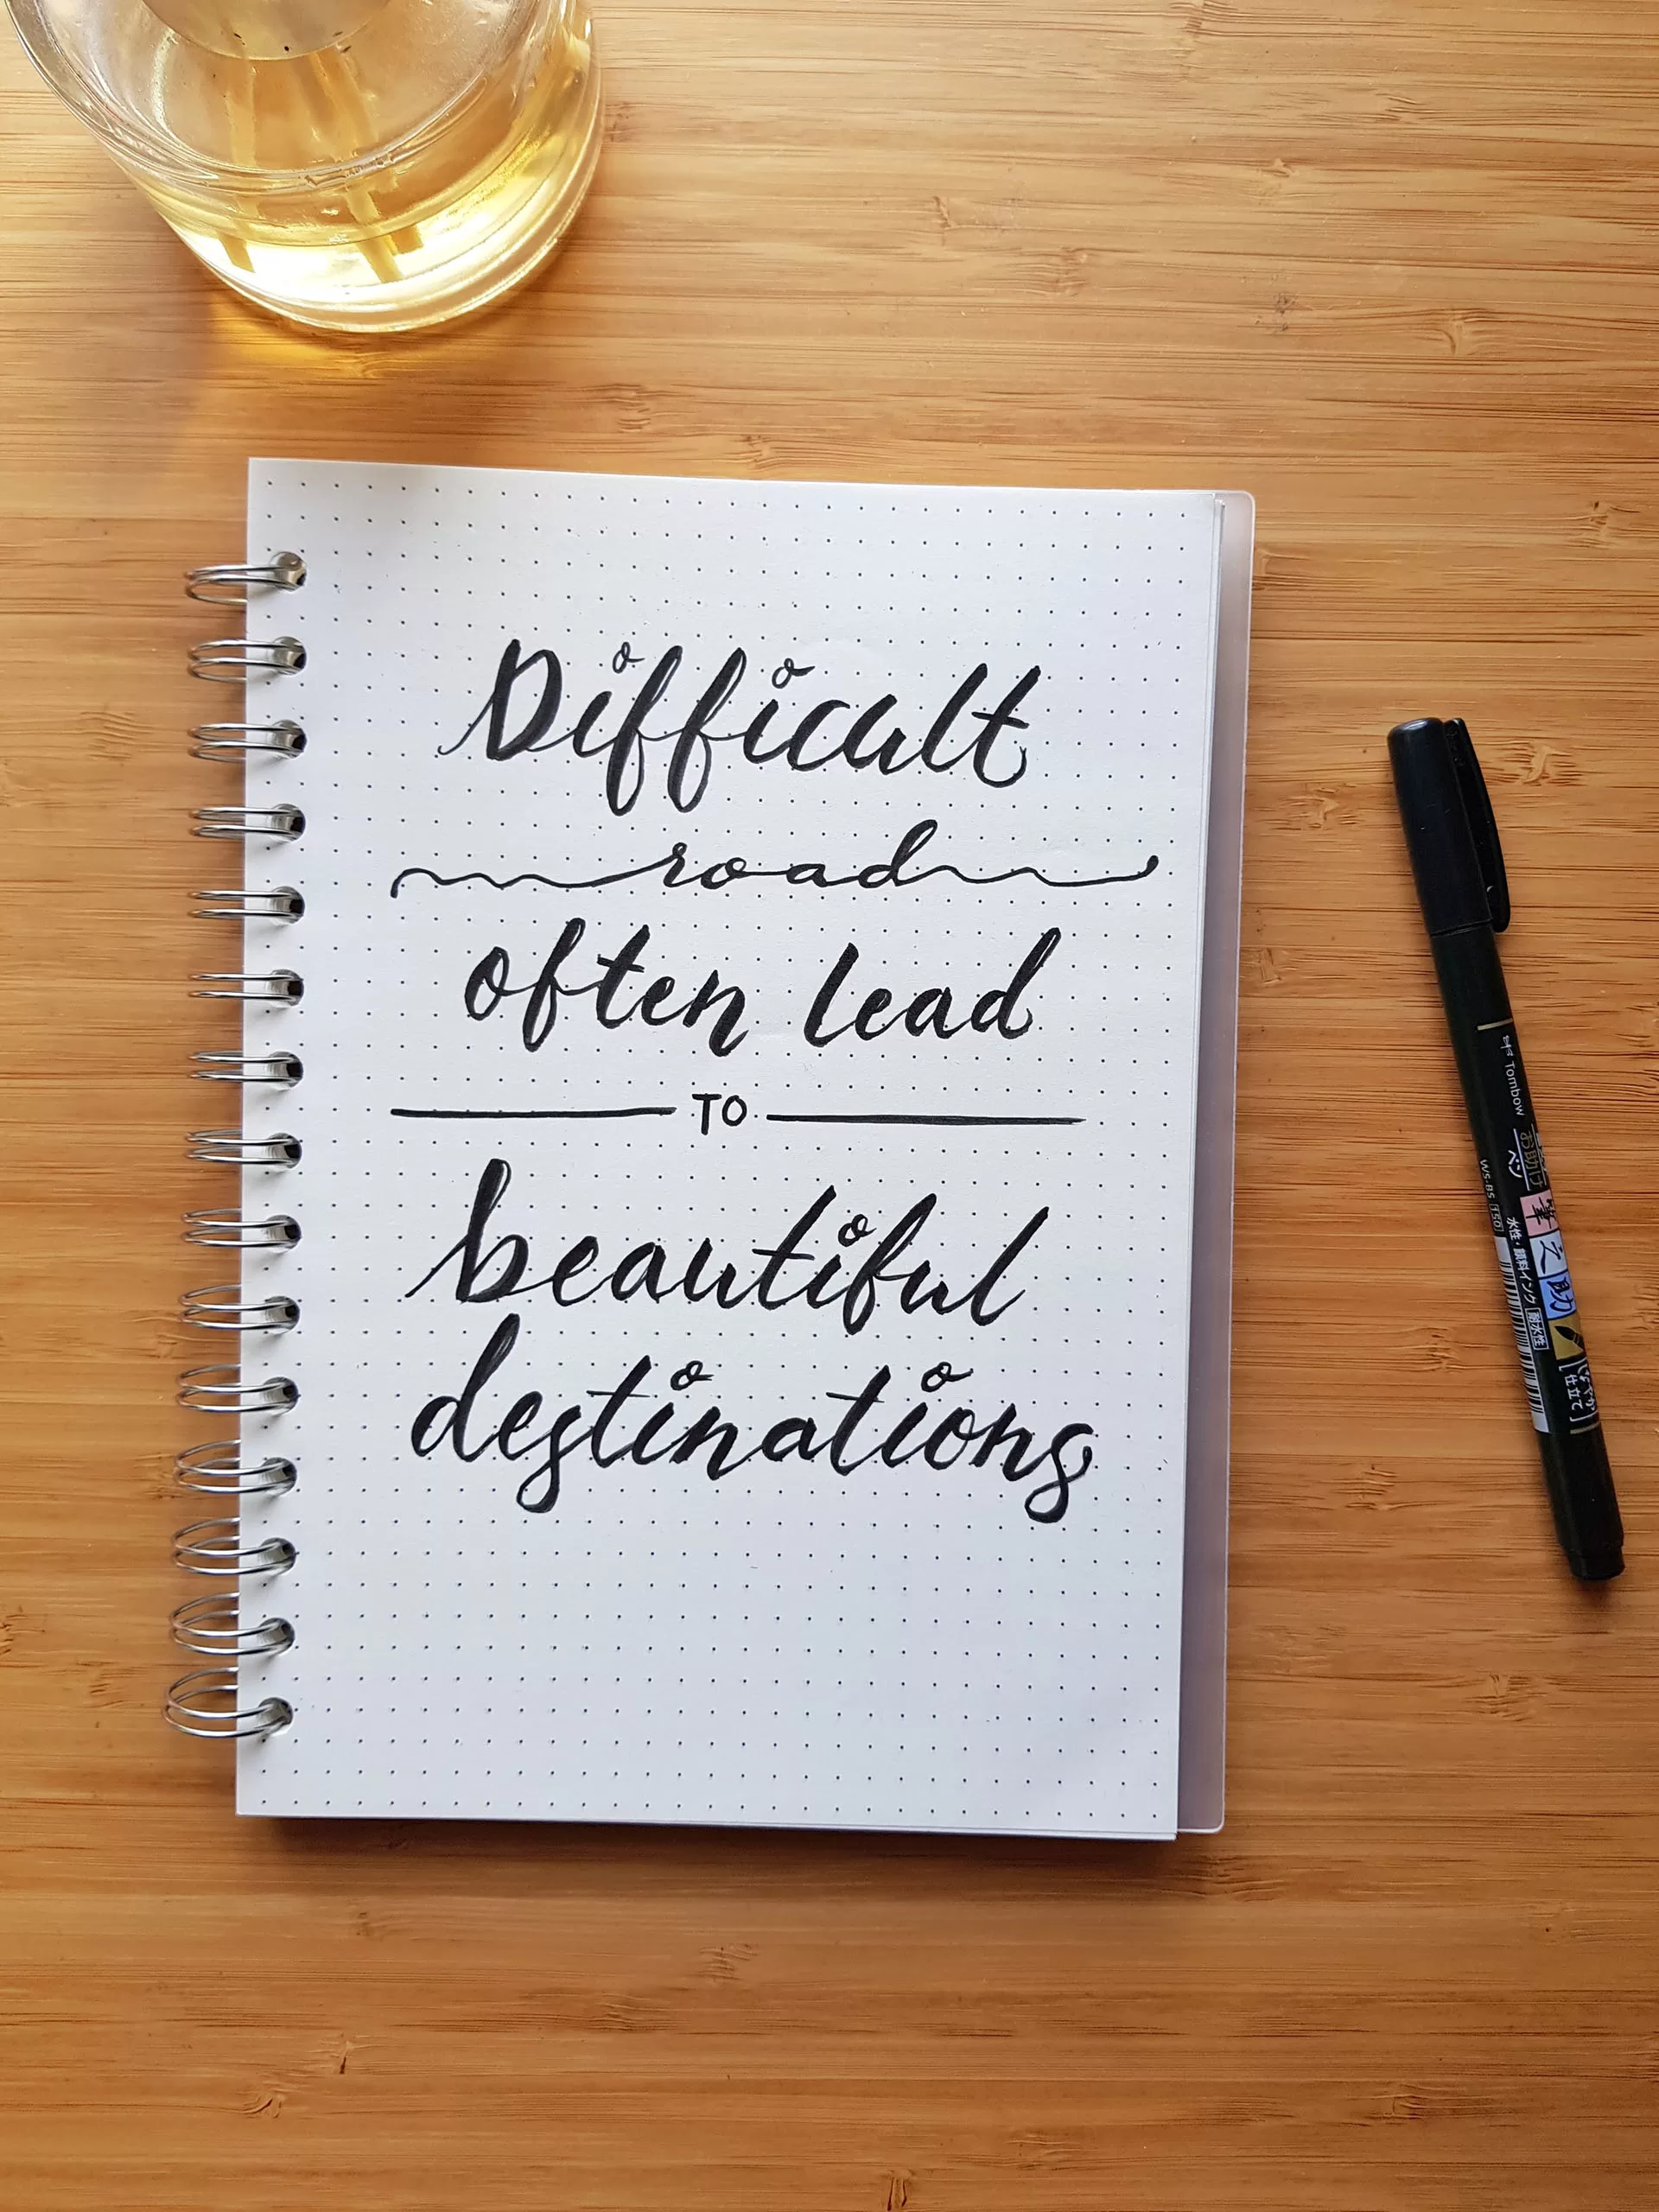 Difficult
road
often lead
TO
beautiful
destinations
Tombow
WS-BS 150
水性・顔料インク 耐水性
仕立て